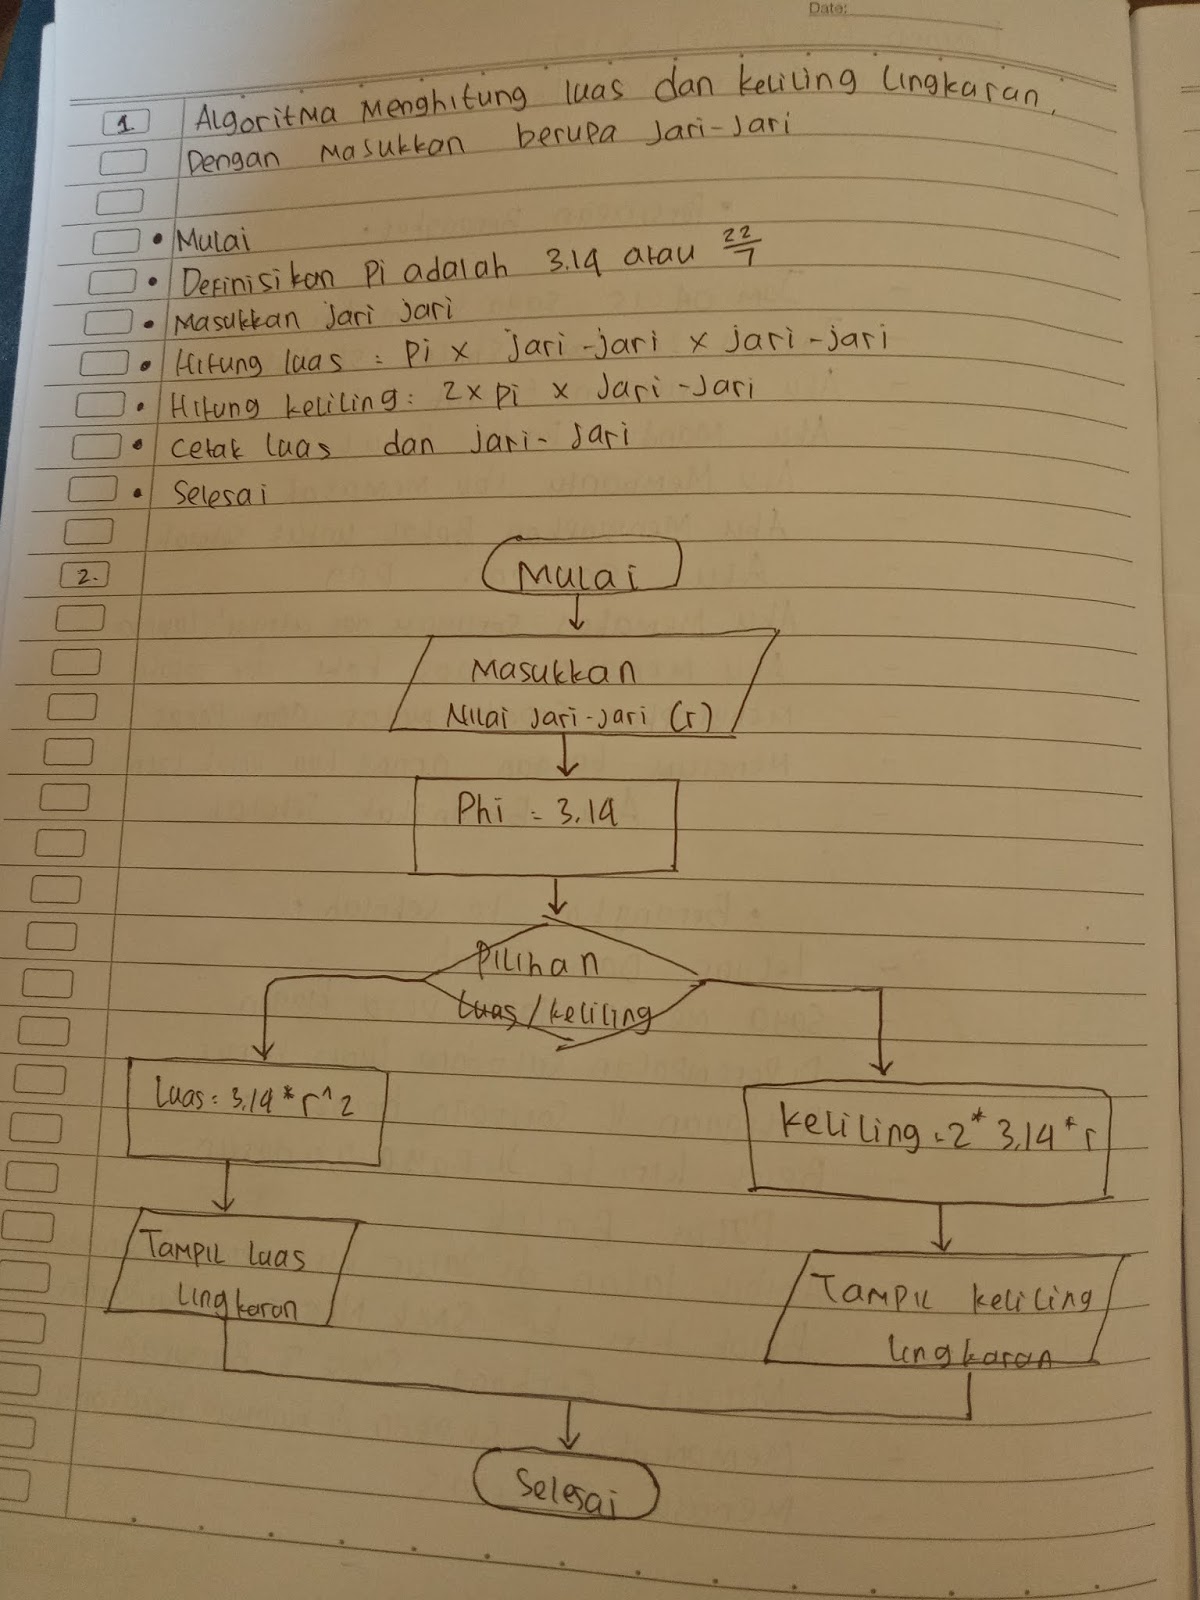 Date:
1. Algoritma Menghitung luas dan keliling lingkaran,
Dengan Masukkan berupa Jari-Jari
• Mulai
• Definisikan Pi adalah 3.14 atau 22/7
• Masukkan jari jari
• Hitung luas : Pi x jari-jari x jari-jari
• Hitung keliling: 2 x pi x Jari-Jari
• Cetak luas dan jari-Jari
• Selesai
2.
Mulai
Masukkan
Nilai jari-jari (r)
Phi = 3.14
Pilihan
luas/keliling
luas = 3.14 * r^2
keliling = 2 * 3.14 * r
Tampil luas
lingkaran
Tampil keliling
lingkaran
Selesai